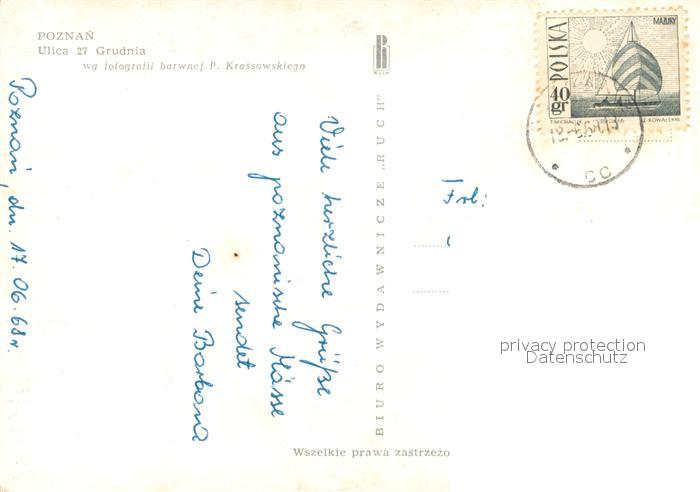 POZNAŃ
Ulica 27 Grudnia
wg fotografii barwnej P. Krassowskiego
RUCH
Poznań, dn. 17.06.68r.
Viele herzliche Grüße
aus poznanische Mässe
sendet
Deine Barbara
BIURO WYDAWNICZE „RUCH”
Wszelkie prawa zastrzeżo
Frl:
POLSKA
MAZURY
40 gr
privacy protection
Datenschutz